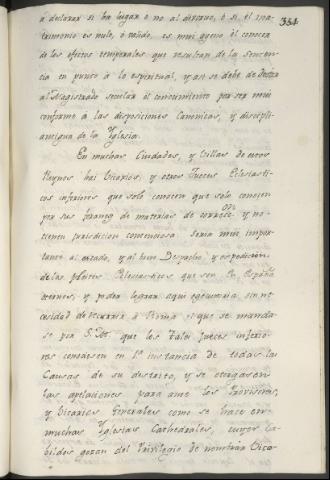 334
à declarar si ha lugar o no al divorcio, ó si el ma-
trimonio es nulo, ó valido, es mui ageno él conocer
de los efectos temporales que resultan de la senten-
cia en punto à lo espiritual, y asi se debe de
al Magistrado secular él conocimiento por ser mui
conforme à las disposiciones Canonicas, y discipli-
antigua de la Yglesia.
En muchas Ciudades, y Villas de estos
Reynos hai Vicarios, y otros Jueces Eclesiasti-
cos inferiores que solo conocen que solo conocen
por sus de materias de y no
tienen jurisdicion contenciosa. Seria mui impor-
tante al estado, y al buen Despacho, y expedicion
de los pleitos Eclesiasticos que son en España
eternos, y poder lograr aqui egecutoria, sin ne-
cesidad de recurrir à Roma, el que se manda-
se por S. M. que los tales Jueces inferio-
res conociesen en 1ª instancia de todas las
Causas de su destrito, y se otorgasen
las apelaciones para ante los Provisores,
y Vicarios Generales como se hace en
muchas Yglesias Cathedrales, cuyos Ca-
bildos gozan del Privilegio de nombrar Vica-